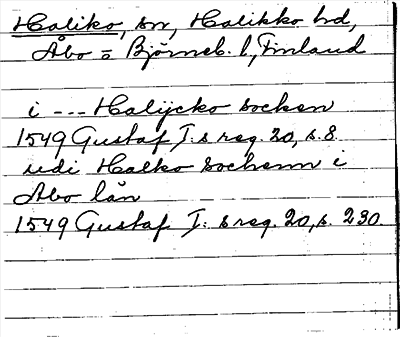 Haliko, sn, Halikko hd,
Åbo o Björneb. l, Finland
i --- Halijcko socken
1549 Gustaf I:s reg. 20, s. 8.
udi Halko sochenn i
Åbo län
1549 Gustaf I:s reg. 20, s. 230.